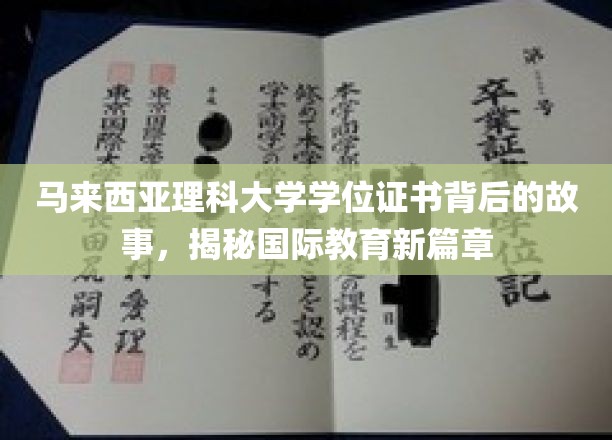 马来西亚理科大学学位证书背后的故
事，揭秘国际教育新篇章
第 号
卒業証 学位記
本学商学部 定の課程を
修めて本学 ことを認め
学士(商学)の する
平成
東京国際大学 村 愛理
東京国際大学 田 嗣夫